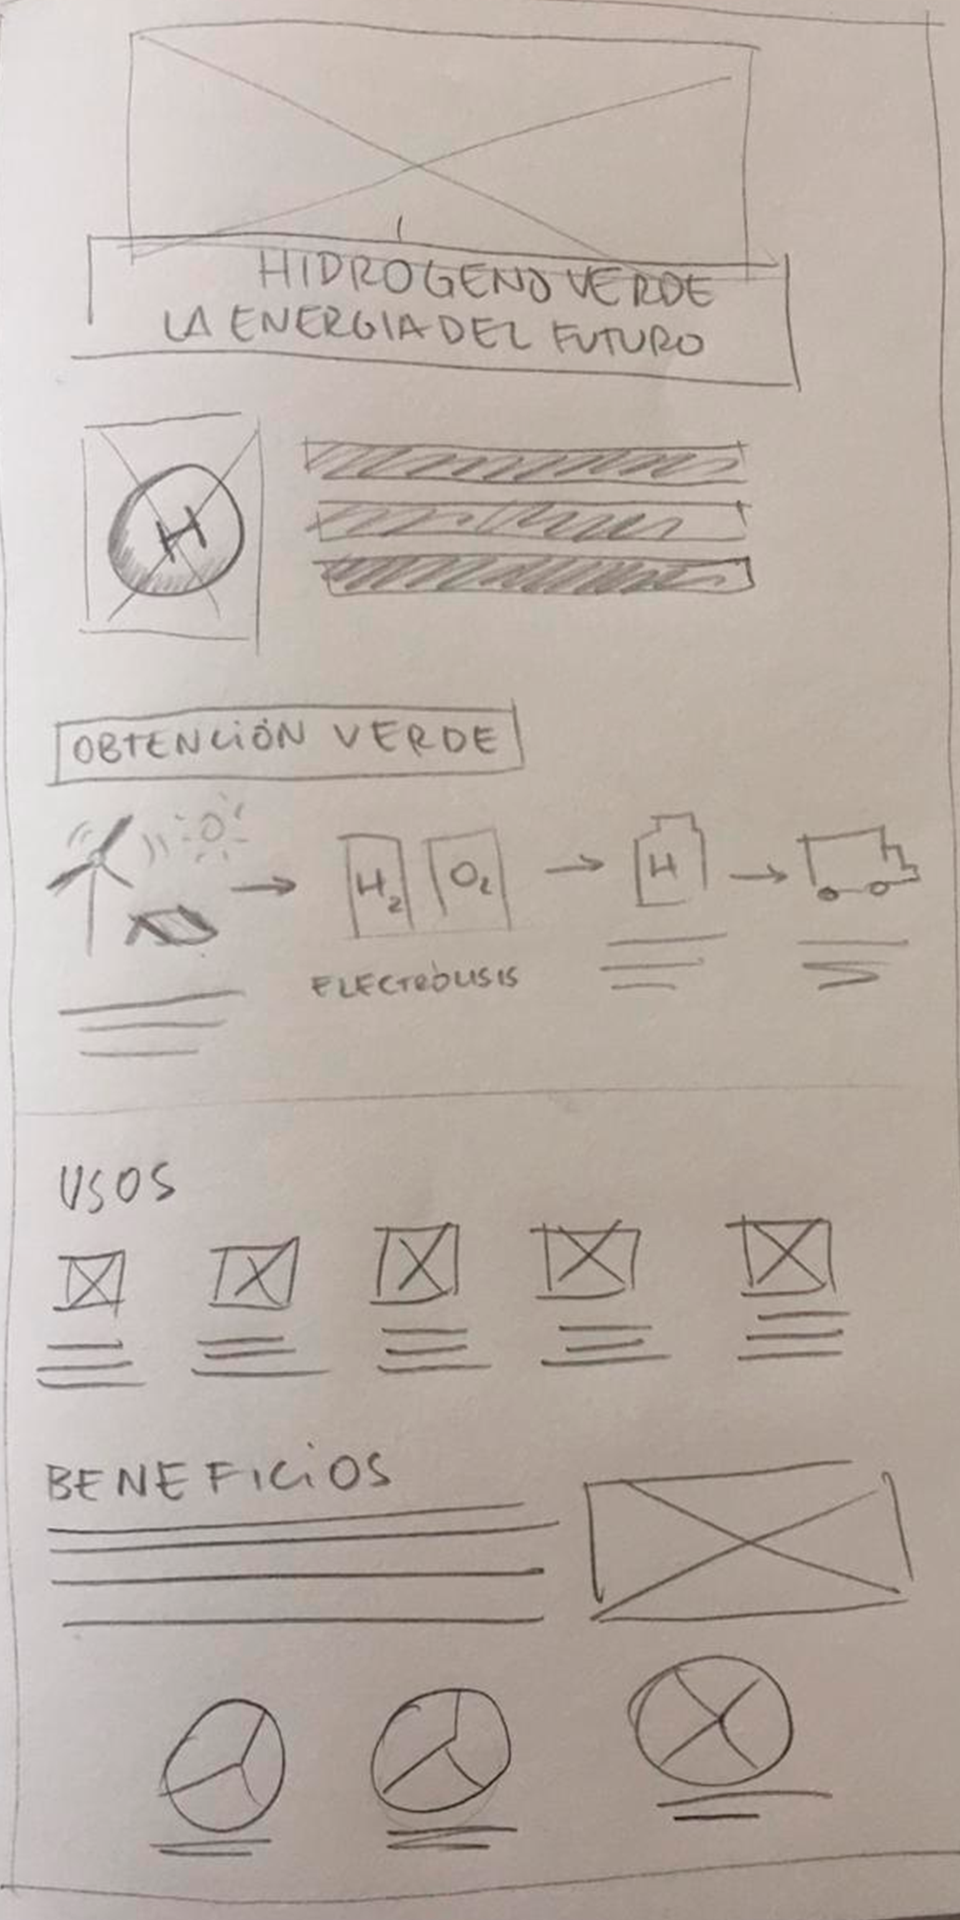 HIDROGENO VERDE
LA ENERGIA DEL FUTURO
H
OBTENCIÓN VERDE
H2 O2 H
ELECTRÓLISIS
USOS
BENEFICIOS